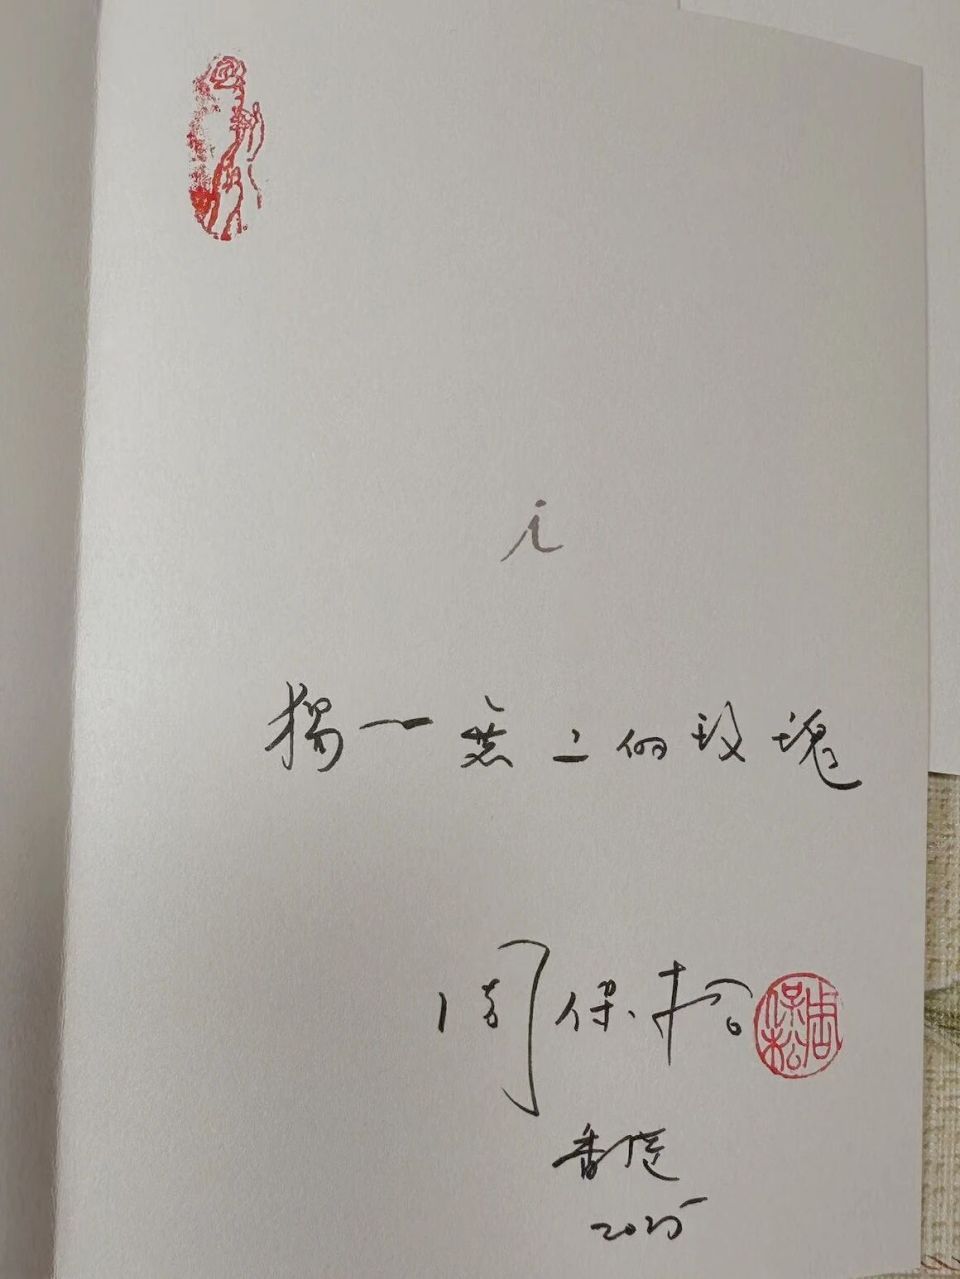 i
獨一無二的玫瑰
周保松
周保松
香港
2025